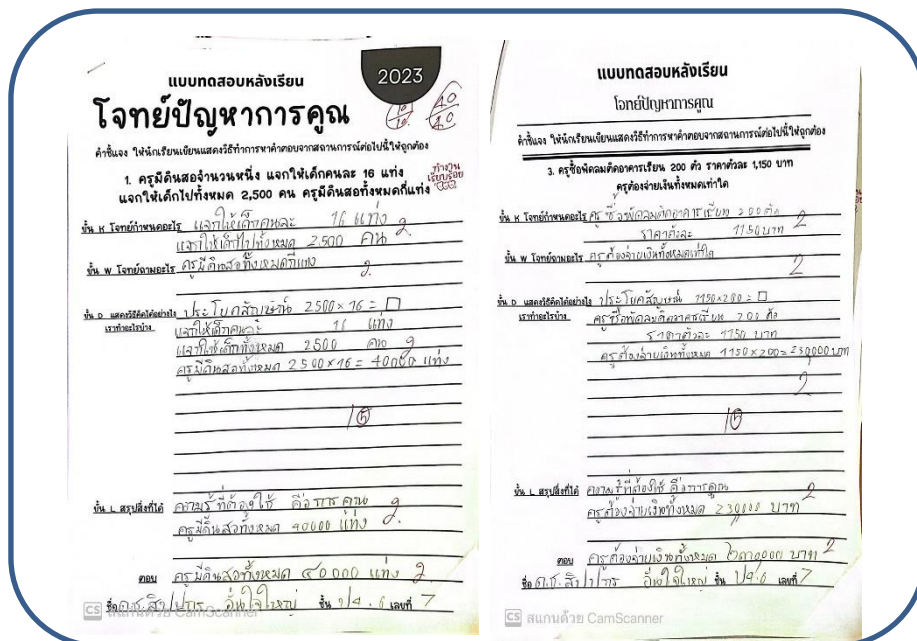 แบบทดสอบหลังเรียน
2023
โจทย์ปัญหาการคูณ
10
10
40
40
คำชี้แจง ให้นักเรียนเขียนแสดงวิธีทำการหาคำตอบจากสถานการณ์ต่อไปนี้ให้ถูกต้อง
1. ครูมีดินสอจำนวนหนึ่ง แจกให้เด็กคนละ 16 แท่ง
แจกให้เด็กไปทั้งหมด 2,500 คน ครูมีดินสอทั้งหมดกี่แท่ง
ทำงาน
เรียบร้อย
ขั้น K โจทย์กำหนดอะไร แจกให้เด็กคนละ 16 แท่ง 2
แจกให้เด็กไปทั้งหมด 2500 คน
ขั้น W โจทย์ถามอะไร ครูมีดินสอทั้งหมดกี่แท่ง 2
ขั้น D แสดงวิธีคิดได้อย่างไร ประโยคสัญลักษณ์ 2500×16 = □
เราทำอะไรบ้าง แจกให้เด็กคนละ 16 แท่ง
แจกให้เด็กทั้งหมด 2500 คน 2
ครูมีดินสอทั้งหมด 2500×16 = 40000 แท่ง
10
ขั้น L สรุปสิ่งที่ได้ ความรู้ที่ต้องใช้ คือการคูณ 2
ครูมีดินสอทั้งหมด 40000 แท่ง
ตอบ ครูมีดินสอทั้งหมด ๔๐๐๐๐ แท่ง 2
ชื่อ ด.ช. อิ่นใจใหญ่ ชั้น ป4.6 เลขที่ 7
CS สแกนด้วย CamScanner
แบบทดสอบหลังเรียน
โจทย์ปัญหาการคูณ
คำชี้แจง ให้นักเรียนเขียนแสดงวิธีทำการหาคำตอบจากสถานการณ์ต่อไปนี้ให้ถูกต้อง
3. ครูซื้อพัดลมติดอาคารเรียน 200 ตัว ราคาตัวละ 1,150 บาท
ครูต้องจ่ายเงินทั้งหมดเท่าใด
ขั้น K โจทย์กำหนดอะไร ครูซื้อพัดลมติดอาคารเรียน 200 ตัว
ราคาตัวละ 1150 บาท 2
ขั้น W โจทย์ถามอะไร ครูต้องจ่ายเงินทั้งหมดเท่าใด
2
ขั้น D แสดงวิธีคิดได้อย่างไร ประโยคสัญลักษณ์ 1150×200 = □
เราทำอะไรบ้าง ครูซื้อพัดลมติดอาคารเรียน 200 ตัว
ราคาตัวละ 1150 บาท
ครูต้องจ่ายเงินทั้งหมด 1150×200 = 230000 บาท
2
10
ขั้น L สรุปสิ่งที่ได้ ความรู้ที่ต้องใช้ คือการคูณ 2
ครูต้องจ่ายเงินทั้งหมด 230000 บาท
ตอบ ครูต้องจ่ายเงินทั้งหมด ๒๓๐๐๐๐ บาท 2
ชื่อ ด.ช. อิ่นใจใหญ่ ชั้น ป4.6 เลขที่ 7
CS สแกนด้วย CamScanner